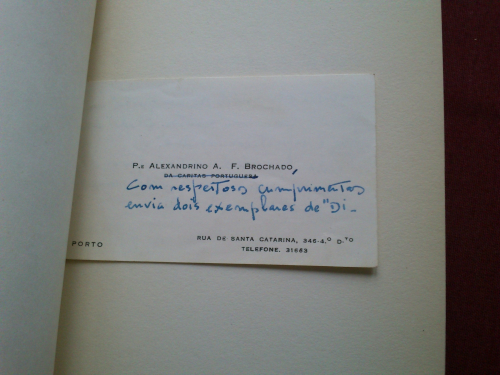 P.e ALEXANDRINO A. F. BROCHADO,
DA CARITAS PORTUGUESA
Com respeitosos cumprimentos
envia dois exemplares de "Di-
PORTO
RUA DE SANTA CATARINA, 346-4.º D.TO
TELEFONE, 31683